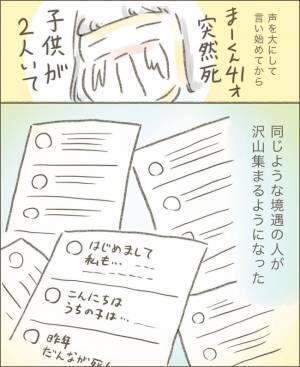 声を大にして
言い始めてから
まーくん41才
突然死
子供が
2人いて
同じような境遇の人が
沢山集まるようになった
はじめまして
私も…
こんにちは
うちの子は…
昨年
だんなが死